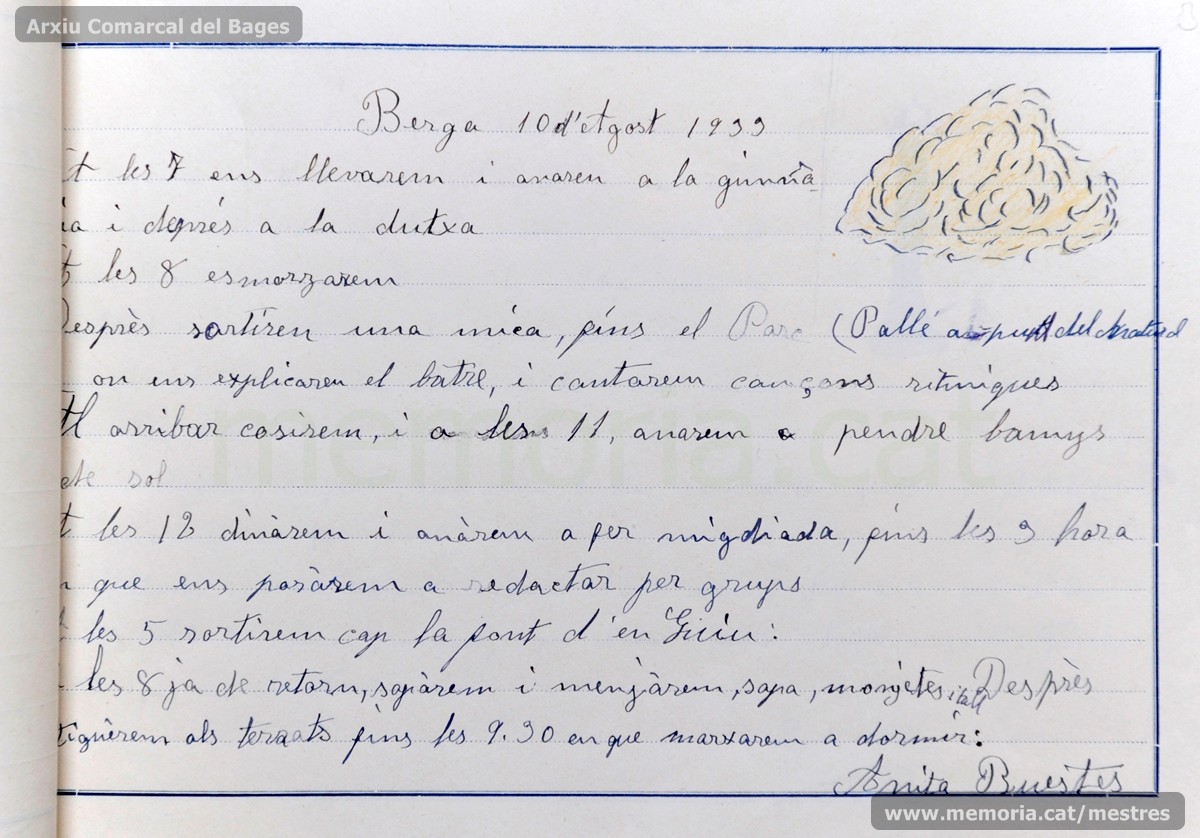 Arxiu Comarcal del Bages
Berga 10 d'Agost 1933
At les 7 ens llevarem i anaren a la gimnà
ia i deprés a la dutxa
les 8 esmorzarem
Desprès sortiren una mica, fins el Parc (Pallé
on ens explicaren el batre, i cantarem cançons ritmiques
Al arribar cosirem, i a les 11, anarem a pendre bamys
de sol
t les 12 dinàrem i anàrem a fer migdiada, fins les 3 hora
que ens posàrem a redactar per grups
les 5 sortirem cap la font d'en Guiu:
les 8 ja de retorn, sopàrem i menjàrem, sopa, monjetes i Desprès
tiguèrem als terrats fins les 9.30 en que marxarem a dormir:
Anita Buestes
memoria.cat
www.memoria.cat/mestres